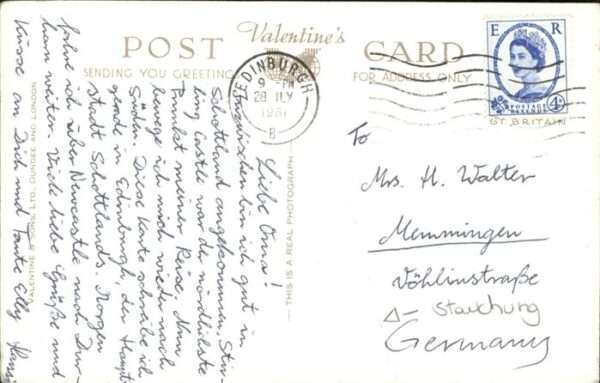 POST Valentine's CARD
SENDING YOU GREETINGS
FOR ADDRESS ONLY
EDINBURGH
9 PM
28 JLY
1961
B
E R
POSTAGE REVENUE
4D
GT. BRITAIN
Liebe Oma!
Inzwischen bin ich gut in
Schottland angekommen. Stir-
ling Castle war der nördlichste
Punkt meiner Reise. Nun
bewege ich mich wieder nach
Süden. Diese Karte schreibe ich
gerade in Edinburgh, der Haupt-
stadt Schottlands. Morgen
fahre ich über Newcastle nach Dur-
ham weiter. Viele liebe Grüße und
Küsse an Dich und Tante Elly
To
Mrs. H. Walter
Memmingen
Vöhlinstraße
Germany
THIS IS A REAL PHOTOGRAPH
VALENTINE & SONS, LTD., DUNDEE AND LONDON